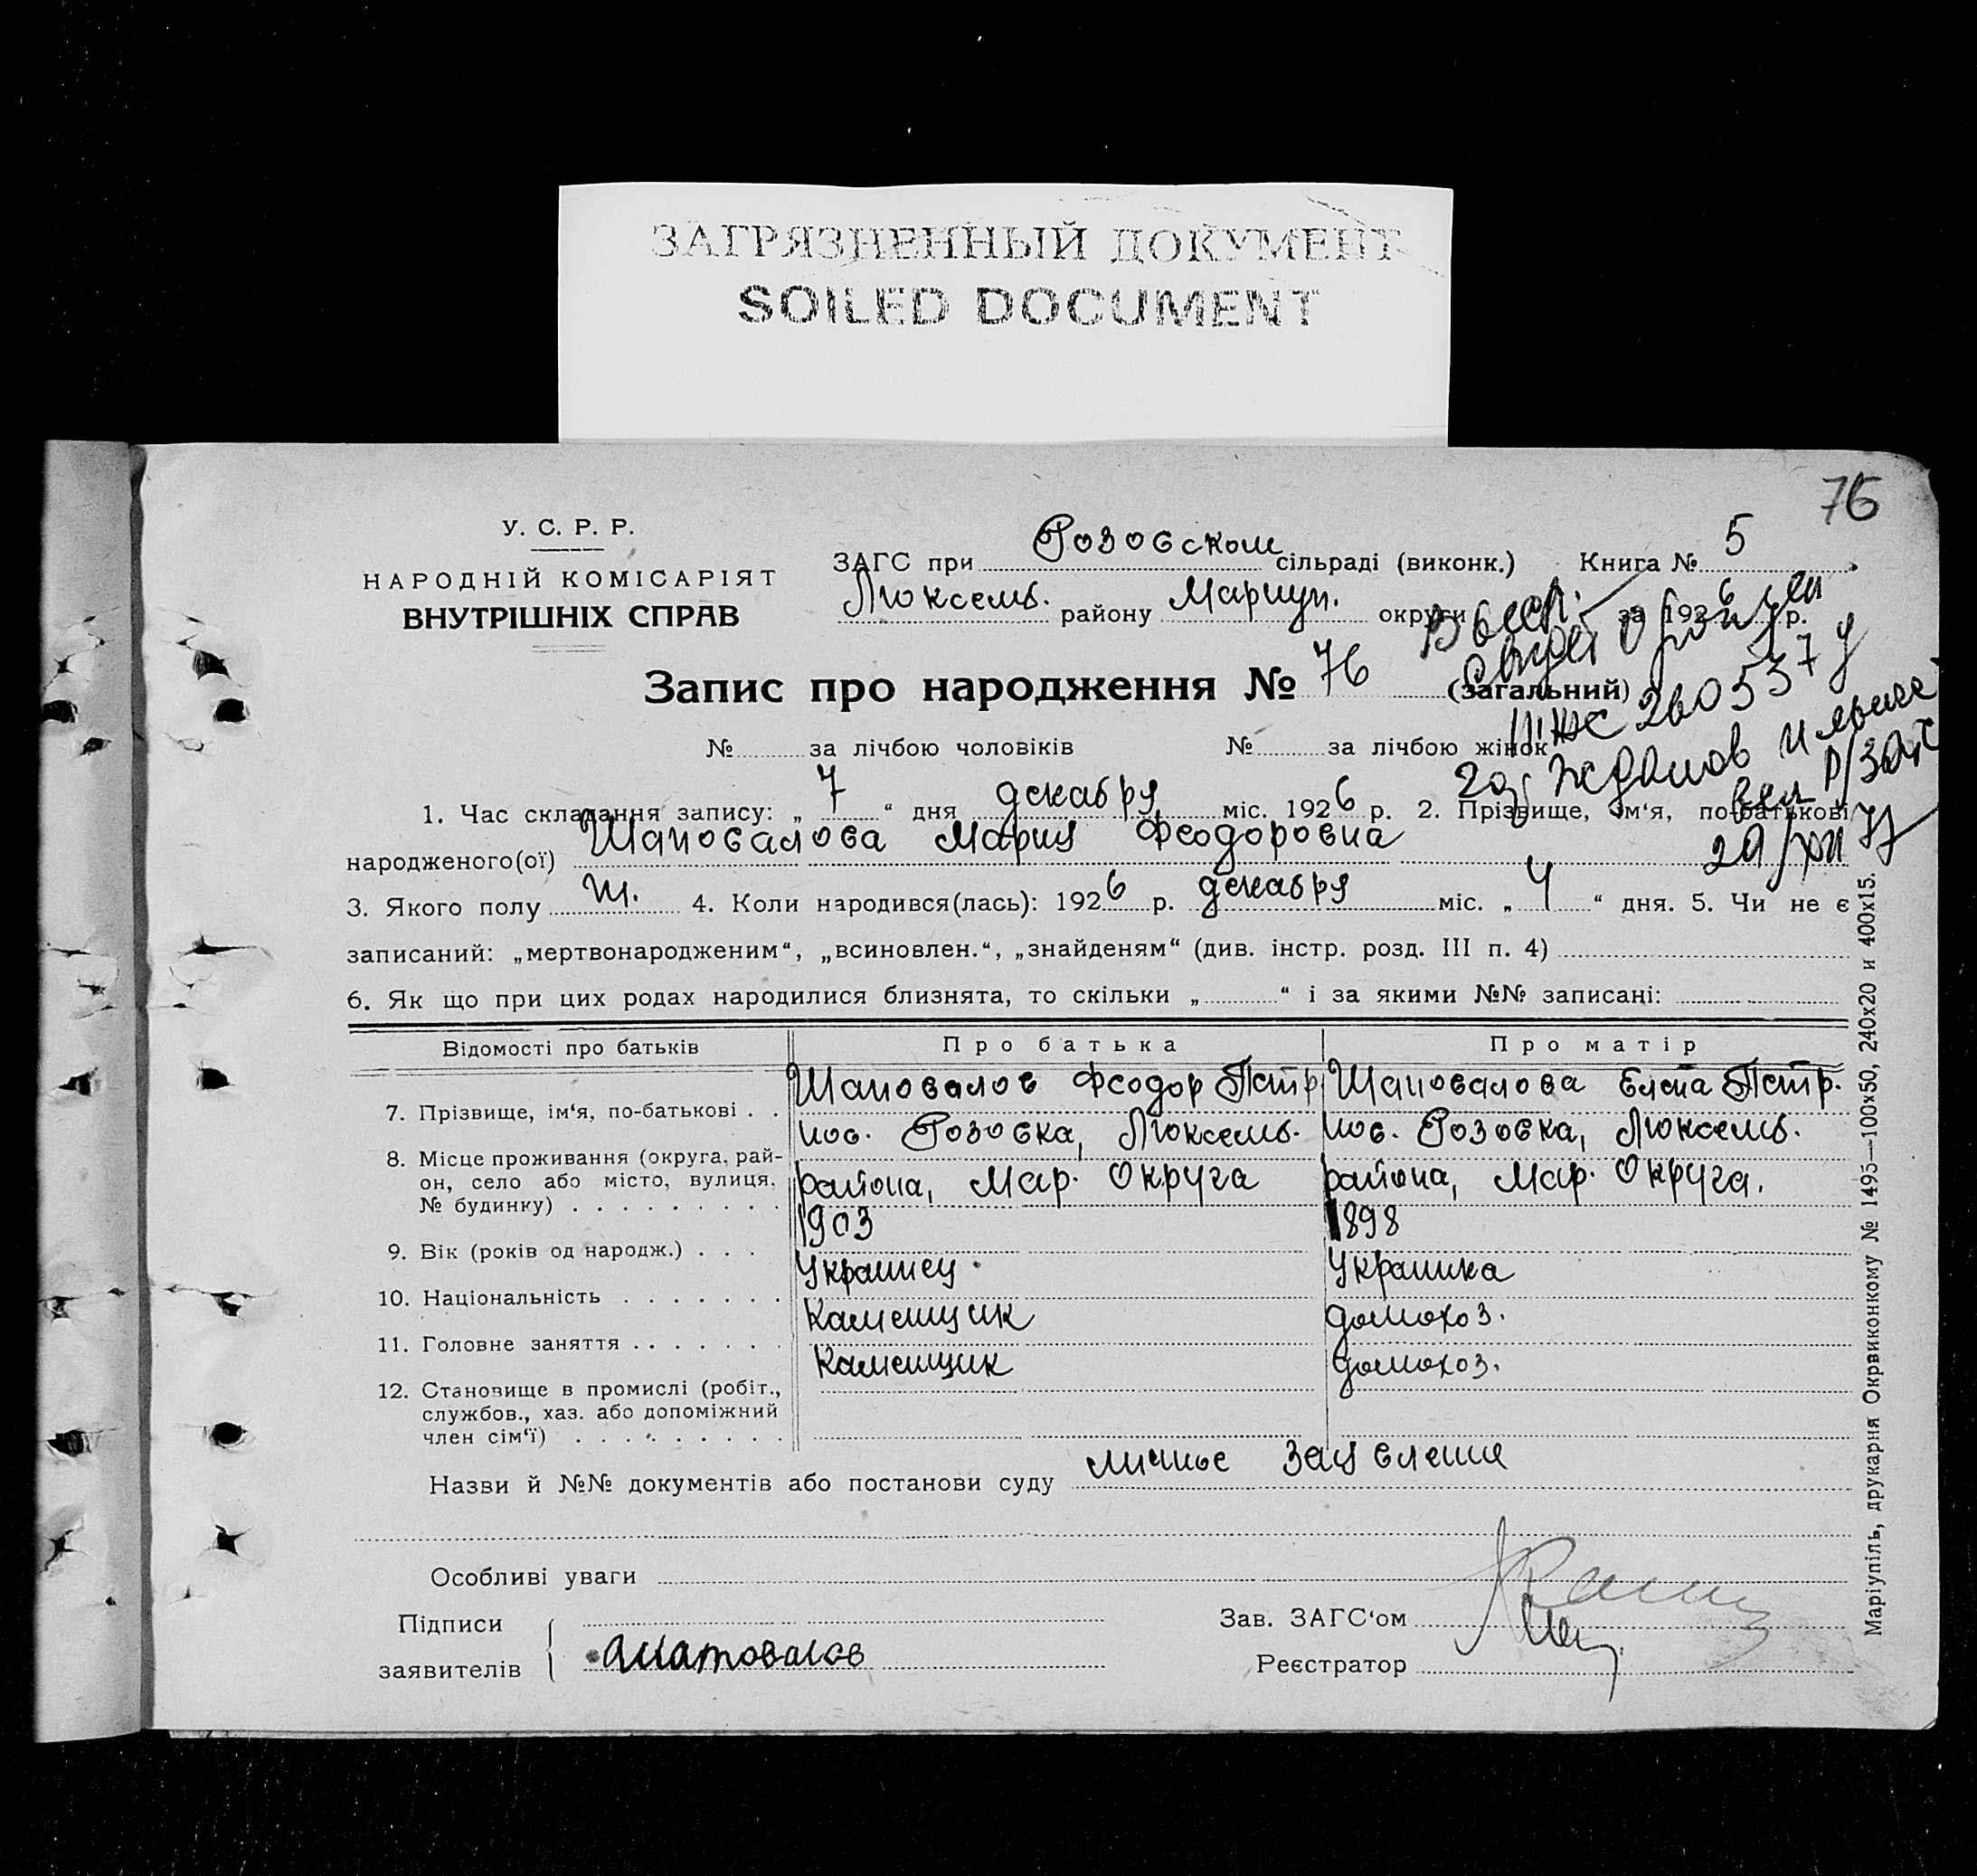 ЗАГРЯЗНЕННЫЙ ДОКУМЕНТ
SOILED DOCUMENT
76
У. С. Р. Р.
НАРОДНІЙ КОМІСАРІЯТ
ВНУТРІШНІХ СПРАВ
ЗАГС при Розовском сільраді (виконк.) Книга № 5
Люксемб. району Мариуп. округи за 1926 р.
Запис про народження № 76 (загальний)
260537
№ за лічбою чоловіків № за лічбою жінок
гор Жданов Ильичев
р/загс
1. Час складання запису: „ 7 “ дня декабря міс. 1926 р. 2. Прізвище, ім‘я, по-батькові
народженого(ої) Шаповалова Мария Феодоровна
29/XII 77
3. Якого полу ж. 4. Коли народився(лась): 1926 р. декабря міс. „ 4 “ дня. 5. Чи не є
записаний: „мертвонародженим“, „всиновлен.“, „знайденям“ (див. інстр. розд. III п. 4)
6. Як що при цих родах народилися близнята, то скільки „ “ і за якими №№ записані:
Відомості про батьків Про батька Про матір
7. Прізвище, ім‘я, по-батькові . . Шаповалов Феодор Петр Шаповалова Елена Петр.
8. Місце проживання (округа, рай- пос. Розовка, Люксемб. пос. Розовка, Люксемб.
он, село або місто, вулиця, района, Мар. Округа района, Мар. Округа.
№ будинку) . . . . . . . . .
9. Вік (років од народж.) . . . 1903 1898
10. Національність . . . . . . . Украинец. Украинка
11. Головне заняття . . . . . . . Каменщик домохоз.
12. Становище в промислі (робіт., Каменщик домохоз.
службов., хаз. або допоміжний
член сім‘ї) . . . . . . . . .
Назви й №№ документів або постанови суду личное заявление
Особливі уваги
Підписи
заявителів
Зав. ЗАГС‘ом
Реєстратор
Маріупіль, друкарня Окрвиконкому № 1495—100х50, 240х20 и 400х15.